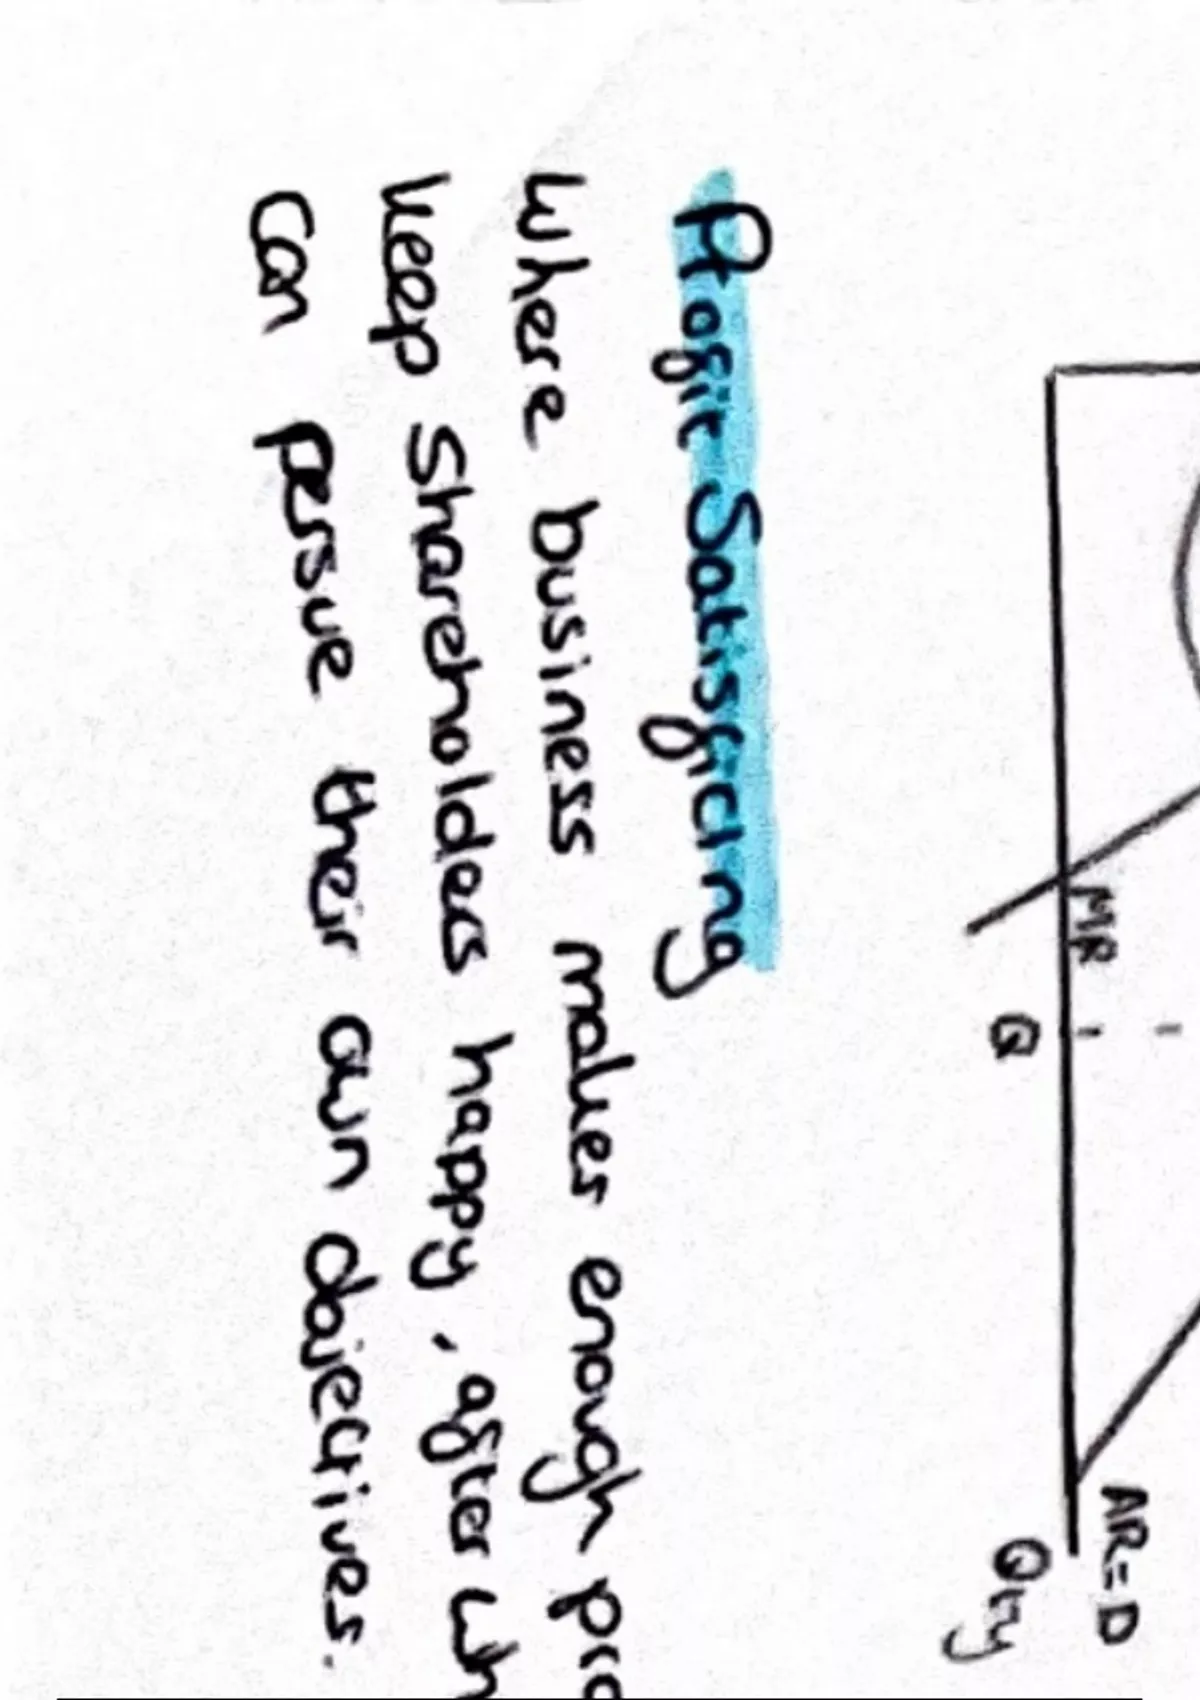 MR
Q
AR=D
Qty
Profit Satisficing
Where business makes enough pro
keep shareholders happy, after wh
can persue their own dojectives.